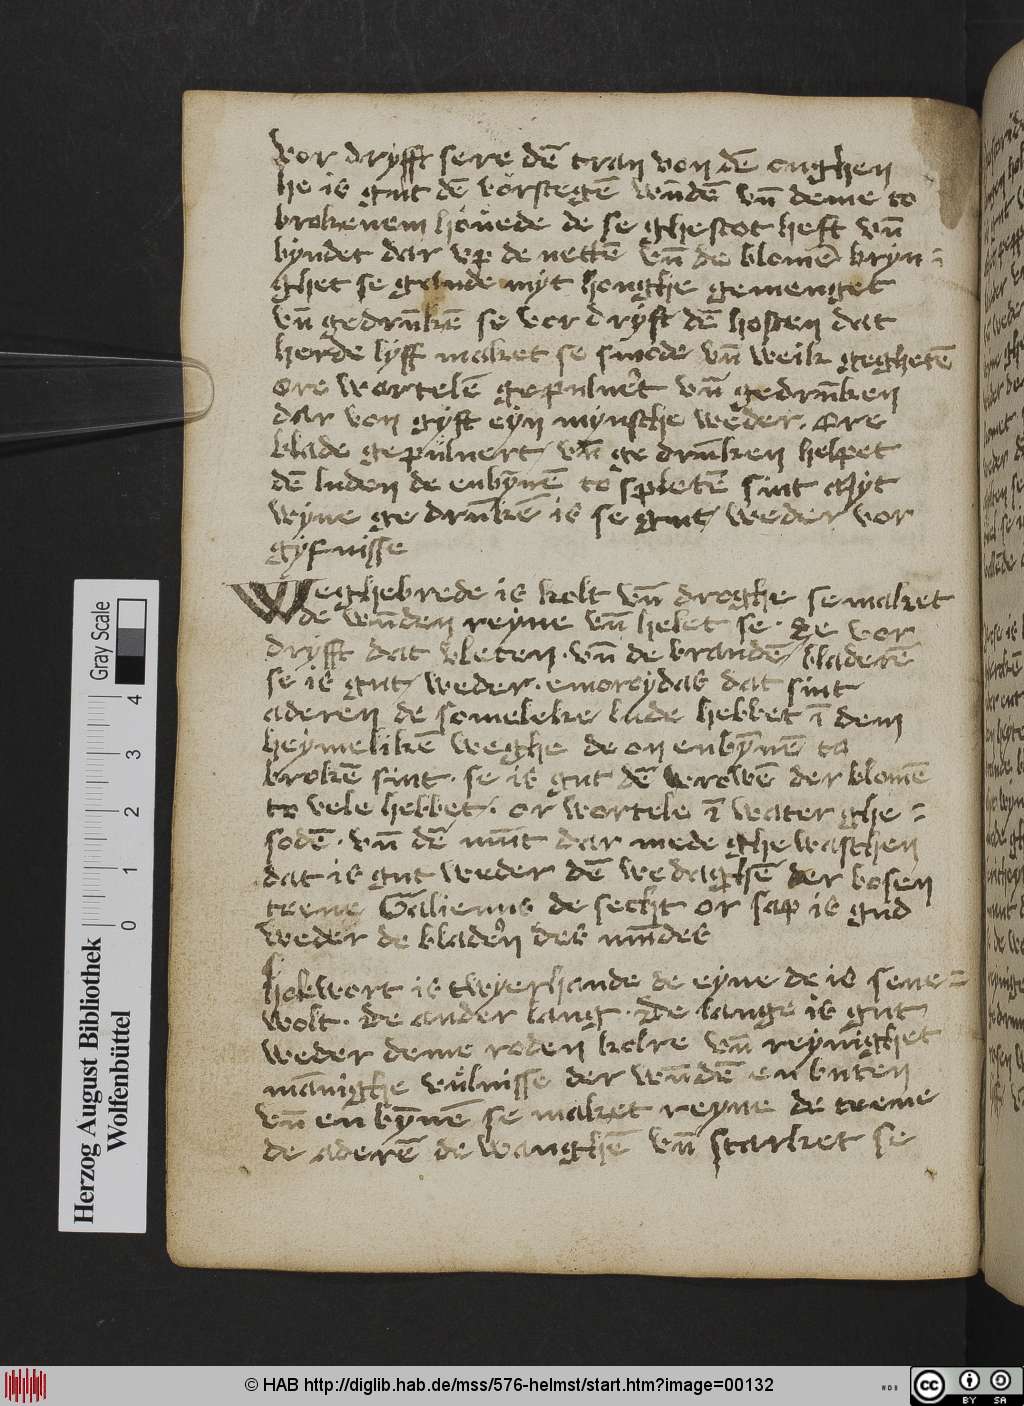 vor dryfft sere dē tran von dē oughen
he is gut dē vorstegē wūdē vn̄ deme to
brokenem houede de se ghestot heft vn̄
byndet dar vp de nettē vn̄ de blomē bryn=
ghet se grunde myt honghe gemenget
vn̄ gedrūkē se vor dryft dē hosten dat
herde lyff maket se smode vn̄ weik geghetē
ore wortelē gepuluert vn̄ gedrūken
dar von gyft eyn mynsche weder. Ore
blade gepuluert vn̄ ge drūken helpet
dē luden de enbȳnē to spletē sint Myt
wyne ge drūkē is se gut weder vor
gyfnisse
Weghebrede is kolt vn̄ droghe se maket
de wūden reyne vn̄ helet se. Se vor
dryfft dat vleten. vn̄ de brandē bladerē
se is gut weder. emoroydas dat sint
aderen de someleke lude hebbet ī dem
heymelikē weghe de on enbȳnē to
brokē sint. se is gut dē vrowē der blomē
to vele hebbet. or wortele ī water ghe=
sodē. vn̄ dē mūt dar mede ghe waschen
dat is gut weder dē wedaghē der bosen
tene Galienus de secht or sap is gud
weder de bladern des mūdes
hokwort is twyerhande de eyne de is sene=
wolt. De ander lang. De lange is gut
weder deme roden kolre vn̄ reynighet
mānighe vulnisse der wūdē en buten
vn̄ en bȳnē se maket reyne de teene
de aderē de wanghē vn̄ starket se
Herzog August Bibliothek
Wolfenbüttel
Gray Scale
0 1 2 3 4
© HAB http://diglib.hab.de/mss/576-helmst/start.htm?image=00132
WDB
cc
BY SA